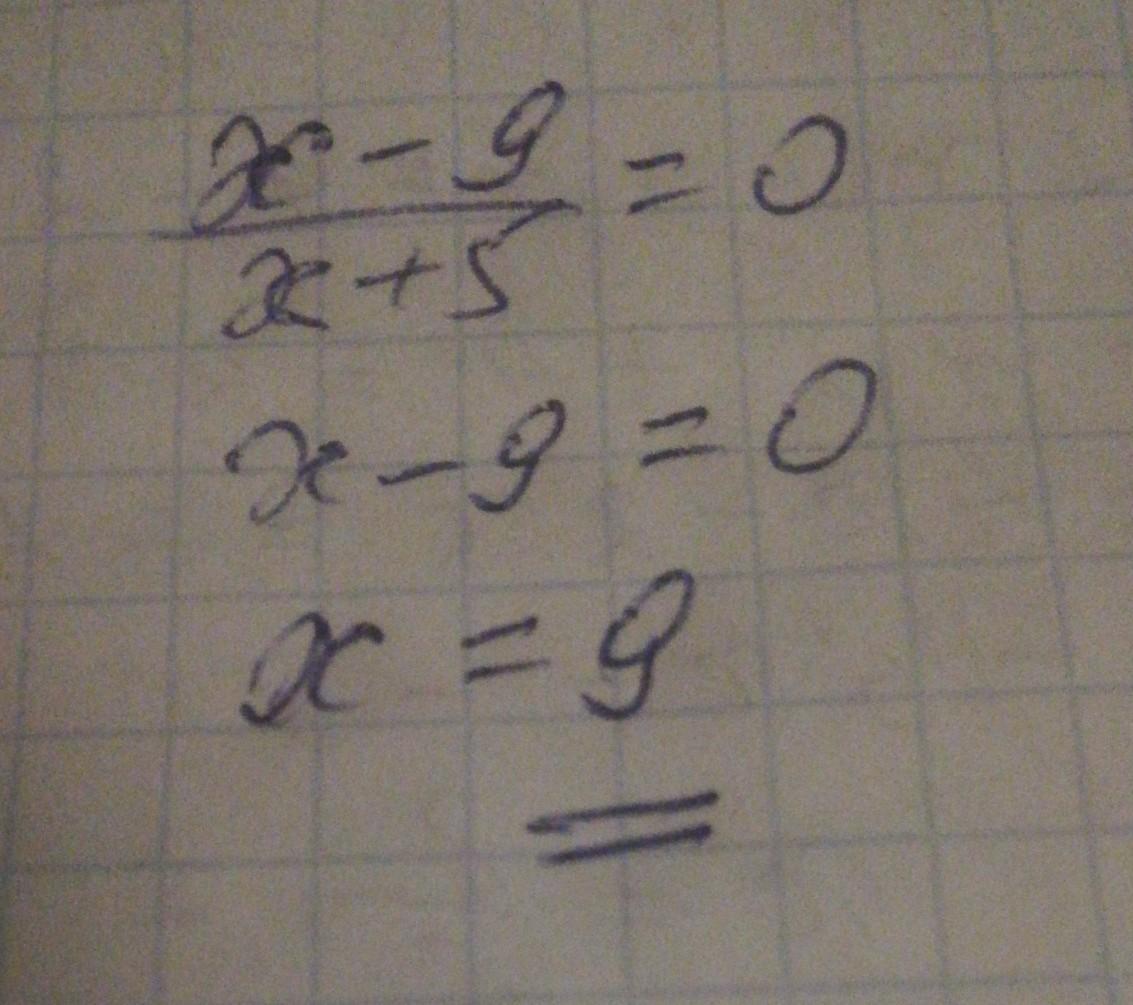 x - 9 = 0
x + 5
x - 9 = 0
x = 9